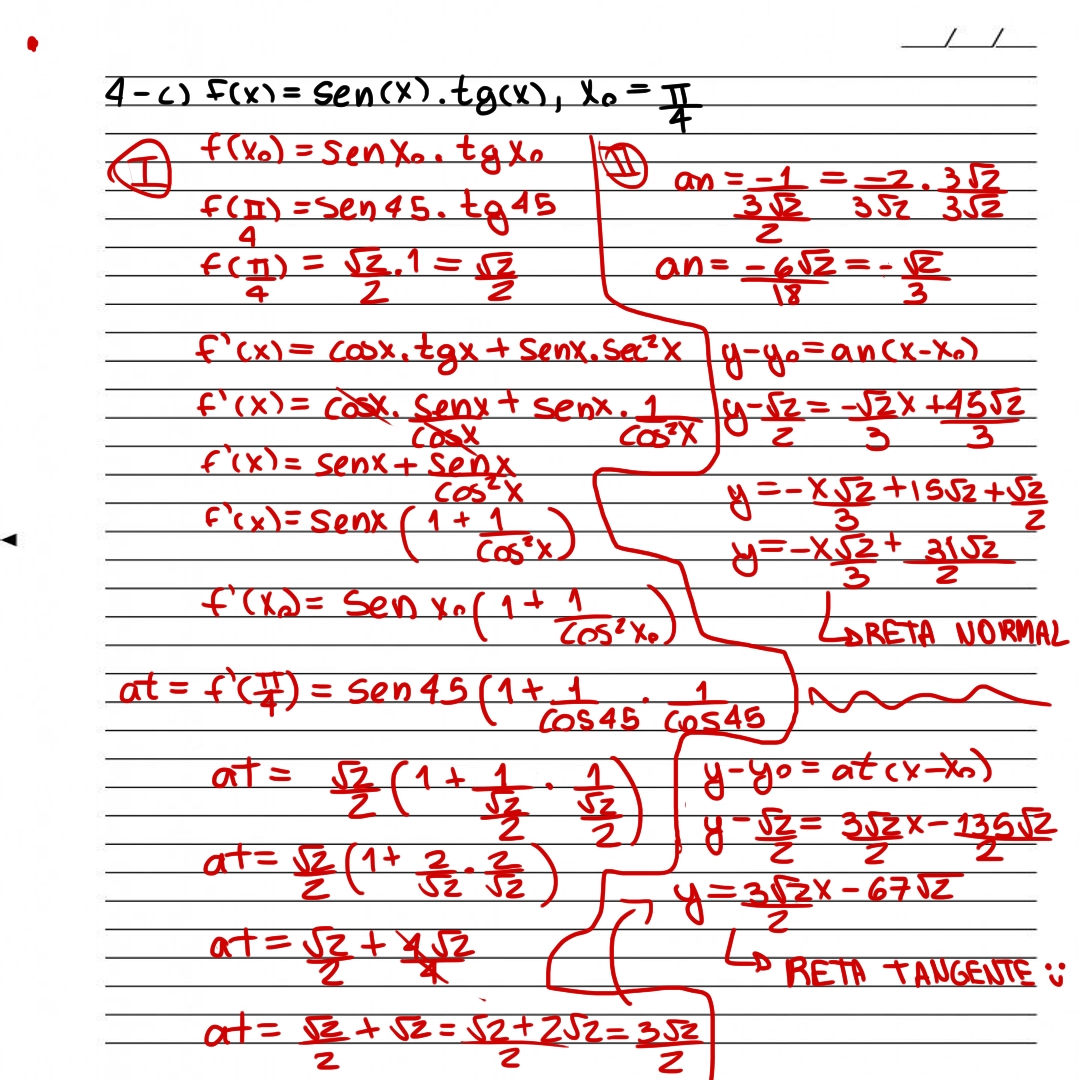 __/__/__
4-c) f(x) = sen(x).tg(x), x₀ = π/4
I
f(x₀) = sen x₀. tg x₀
f(π/4) = sen 45. tg 45
f(π/4) = √2/2 . 1 = √2/2
f'(x) = cosx.tgx + senx.sec²x
f'(x) = cosx. senx/cosx + senx. 1/cos²x
f'(x) = senx + senx/cos²x
f'(x) = senx (1 + 1/cos²x)
f'(x₀) = sen x₀ (1 + 1/cos²x₀)
at = f'(π/4) = sen 45 (1 + 1/cos45 . 1/cos45
at = √2/2 (1 + 1/(√2/2) . 1/(√2/2))
at = √2/2 (1 + 2/√2 . 2/√2)
at = √2/2 + 4√2/4
at = √2/2 + √2 = √2+2√2/2 = 3√2/2
II
an = -1/(3√2/2) = -2/3√2 . 3√2/3√2
an = -6√2/18 = -√2/3
y-y₀ = an(x-x₀)
y-√2/2 = -√2x/3 + 45√2/3
y = -x√2/3 + 15√2 + √2/2
y = -x√2/3 + 31√2/2
↳ RETA NORMAL
y-y₀ = at(x-x₀)
y-√2/2 = 3√2x/2 - 135√2/2
y = 3√2x/2 - 67√2
↳ RETA TANGENTE :)